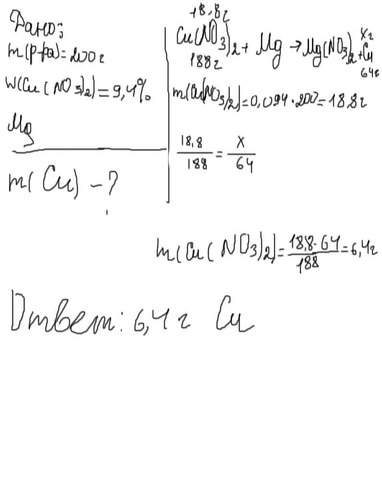 Дано:
m(р-ра)=200г
W(Cu(NO3)2)=9,4%
Mg
m(Cu) - ?
18,8г x г
Cu(NO3)2 + Mg → Mg(NO3)2 + Cu
188г 64г
m(Cu(NO3)2)=0,094·200=18,8г
18,8/188 = x/64
m(Cu(NO3)2)=18,8·64/188=6,4г
Ответ: 6,4г Cu